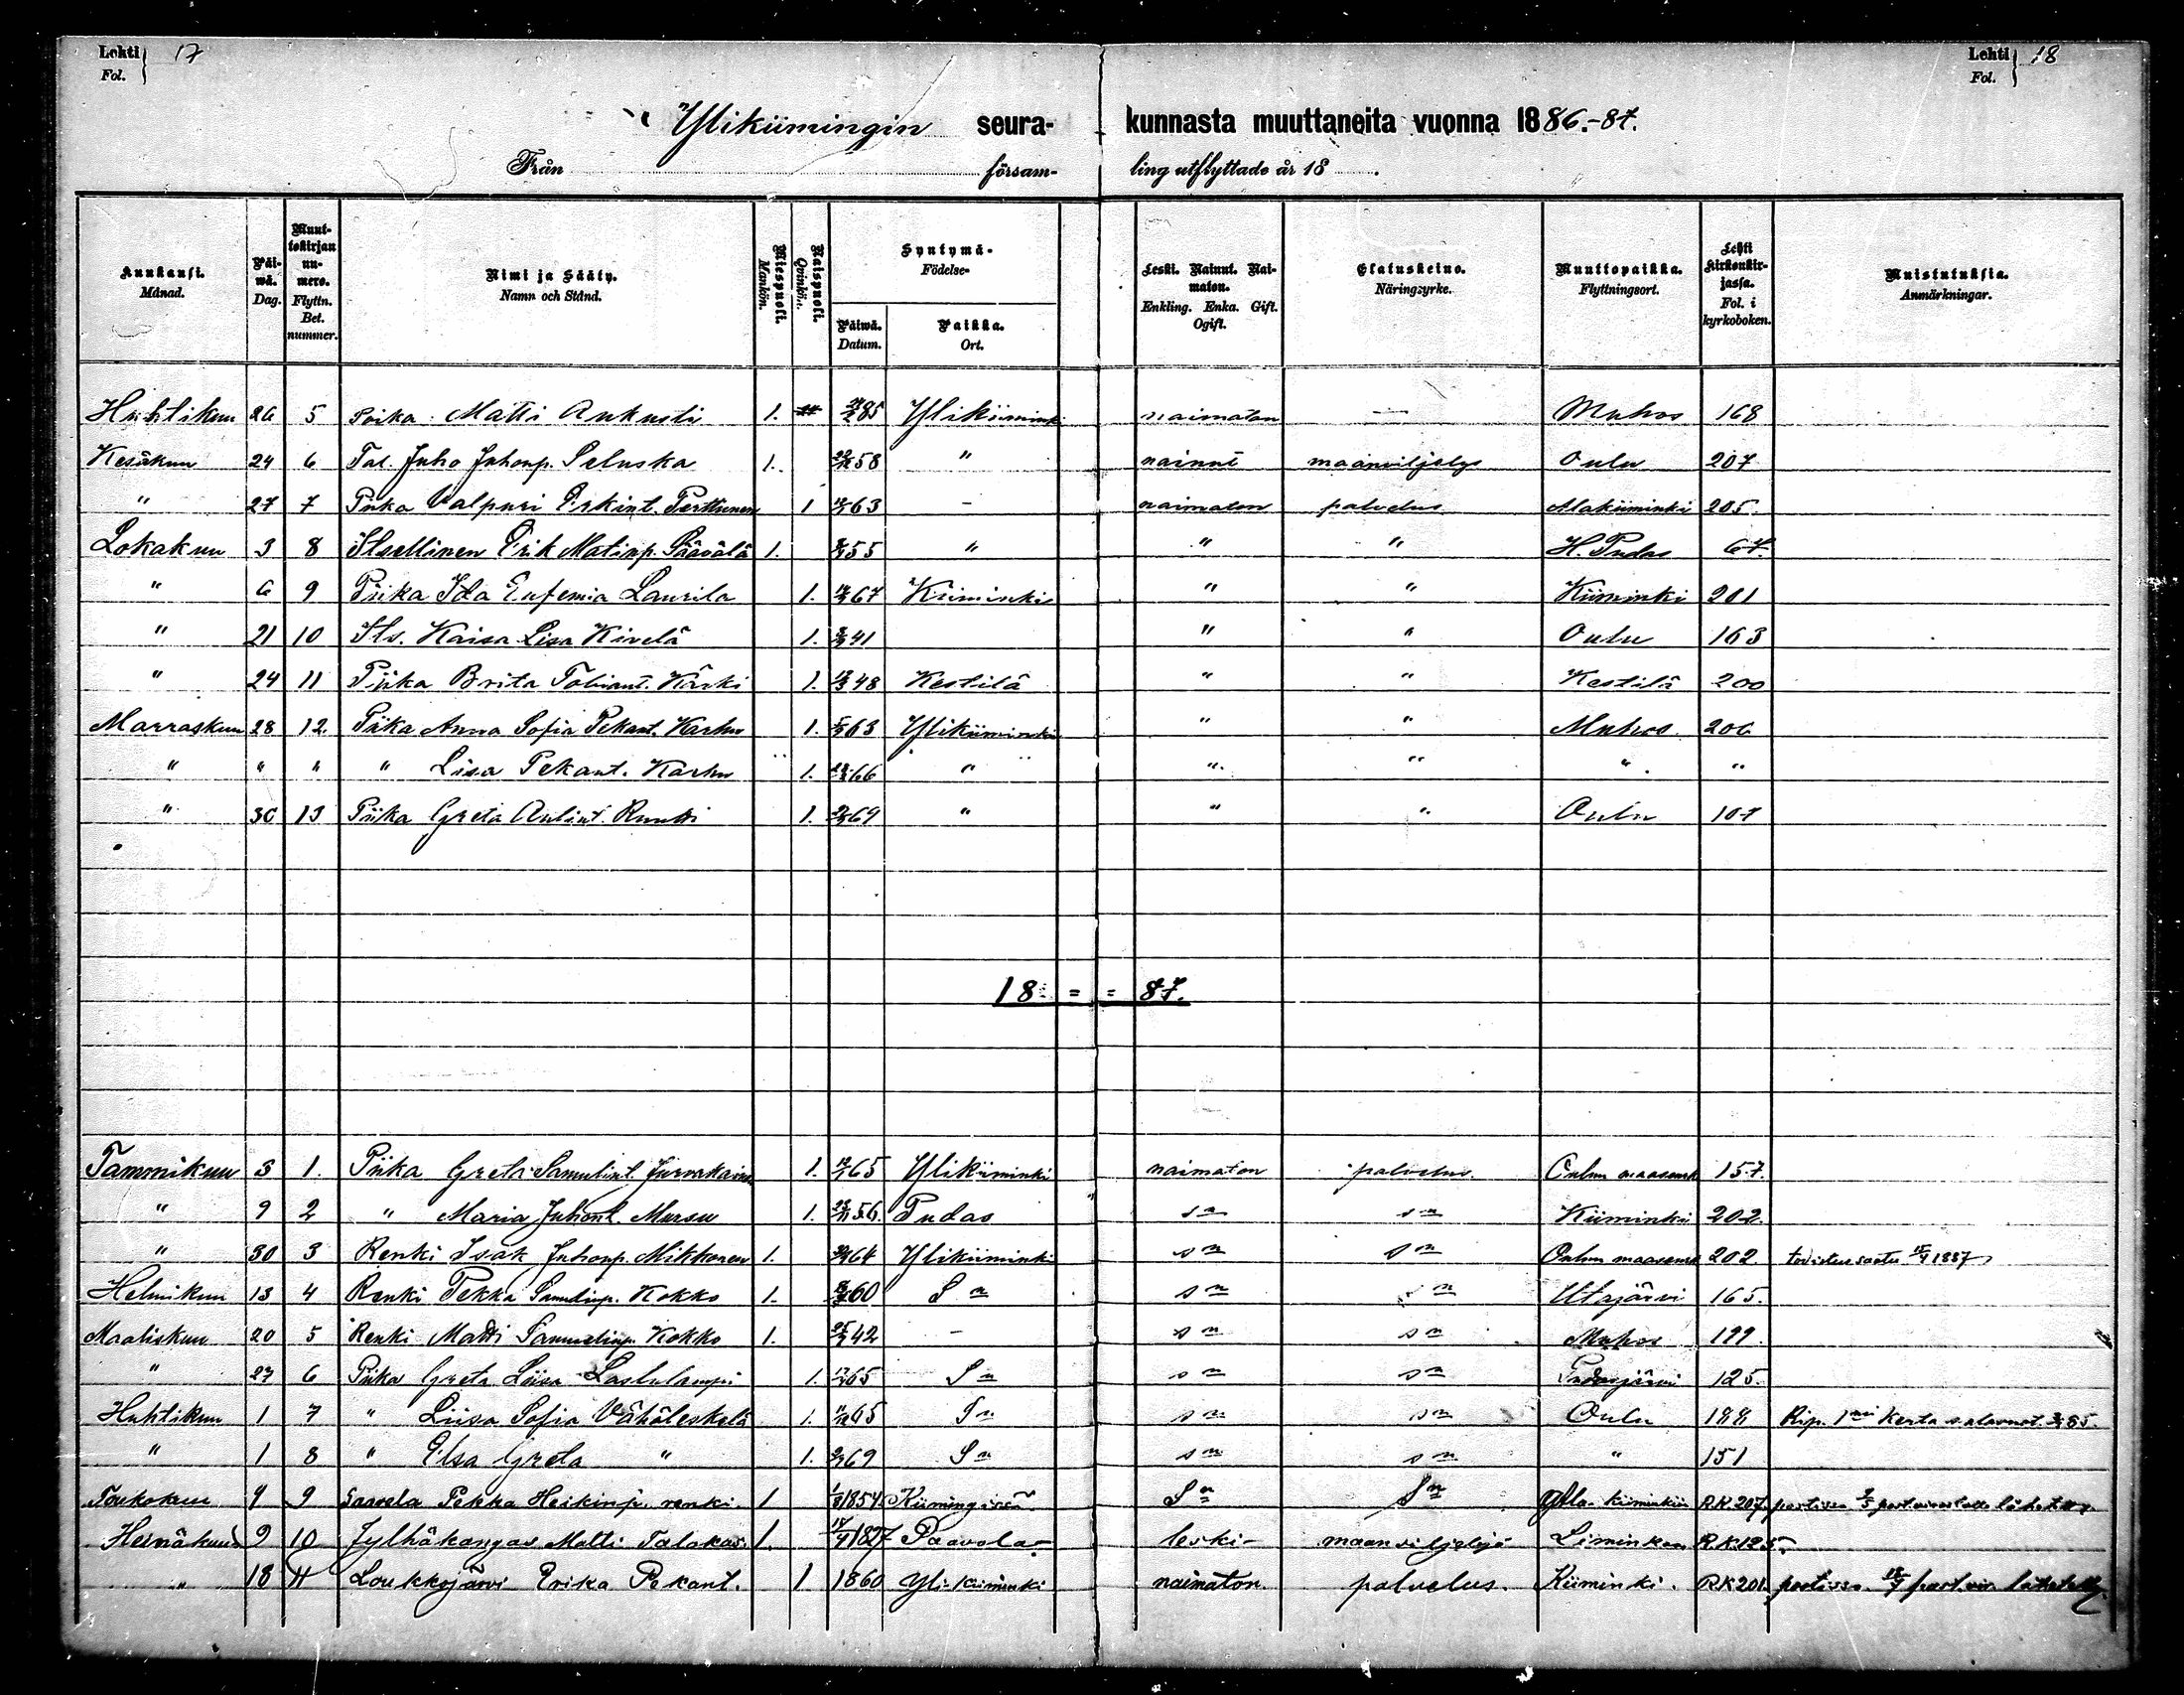 Lehti Fol. } 17
Lehti Fol. } 18
Ylikiimingin seura- kunnasta muuttaneita vuonna 1886.-87.
Från försam- ling utflyttade år 18 .
Kuukausi. Månad. Päi- wä. Dag. Muut- tokirjan nu- mero. Flyttn. Bet. nummer. Nimi ja Sääty. Namn och Stånd. Miespuoli. Mankön. Naispuoli. Qvinkön. Syntymä- Födelse- Päiwä. Datum. Paikka. Ort. Leski. Nainut. Nai- maton. Enkling. Enka. Gift. Ogift. Elatuskeino. Näringsyrke. Muuttopaikka. Flyttningsort. Lehti kirkonkir- jassa. Fol. i kyrkoboken. Muistutuksia. Anmärkningar.
Huhtikuu 26 5 Poika Matti Aukusti 1. 85 Ylikiiminki naimaton — Muhos 168
Kesäkuu 24 6 Tal. Juho Juhonp. Seluska 1. 58 " nainut maanviljelys Oulu 207
" 27 7 Piika Valpuri Erkint. Perttunen 1 63 - naimaton palvelus Alakiiminki 205
Lokakuu 3 8 Itsellinen Erik Matinp. Päävälä 1. 55 " " " H. Pudas 67.
" 6 9 Piika Ida Eufemia Laurila 1. 67 Kiiminki " " Kiiminki 201
" 21 10 Its. Kaisa Lisa Kivelä 1. 41 " " Oulu 163
" 24 11 Piika Brita Tobiant. Kärki 1. 48 Kestilä " " Kestilä 200
Marraskuu 28 12. Piika Anna Sofia Pekant. Karhu 1. 63 Ylikiiminki " " Muhos 206
" " " " Lisa Pekant. Karhu 1. 66 " " " " "
" 30 13 Piika Greta Antint. Ruutti 1. 69 " " " Oulu 107
18 = = 87.
Tammikuu 3 1. Piika Greta Samulint. Jurvakainen 1. 65 Ylikiiminki naimaton palvelus. Oulun maaseurak 157.
" 9 2 " Maria Juhont. Mursu 1. 56. Pudas s n s n Kiiminki 202.
" 30 3 Renki Isak Juhonp. Mikkonen 1. 64 Ylikiiminki s n s n Oulun maaseurak 202. todistus saatu 15/4 1887
Helmikuu 13 4 Renki Pekka Samulinp. Kokko 1. 60 S n s n s n Utajärvi 165.
Maaliskuu 20 5 Renki Matti Samulinp. Kokko 1. 42 - s n s n Muhos 199.
" 27 6 Piika Greta Liisa Lastulampi 1. 65 S n s n s n Pudasjärvi 125.
Huhtikuu 1 7 " Liisa Sofia Vähäleskelä 1. 65 S n s n s n Oulu 188 Rip. 1 kerta salavuot. 85.
" 1 8 " Elsa Greta " 1. 69 S n s n s n " 151
Toukokuu 4 9 Saavela Pekka Heikinp. renki 1 1854 Kiimingissä S n S n Yla-kiiminkiin R.K. 207. postissa
Heinäkuu 9 10 Jylhäkangas Matti Talokas 1. 14/9 1827 Paavola leski- maanviljelijä Liminkaan R.K. 125.
" 18 11 Loukkojärvi Erika Pekant. 1 1860 Yli-kiiminki naimaton. palvelus. Kiiminki. R.K 201. postissa